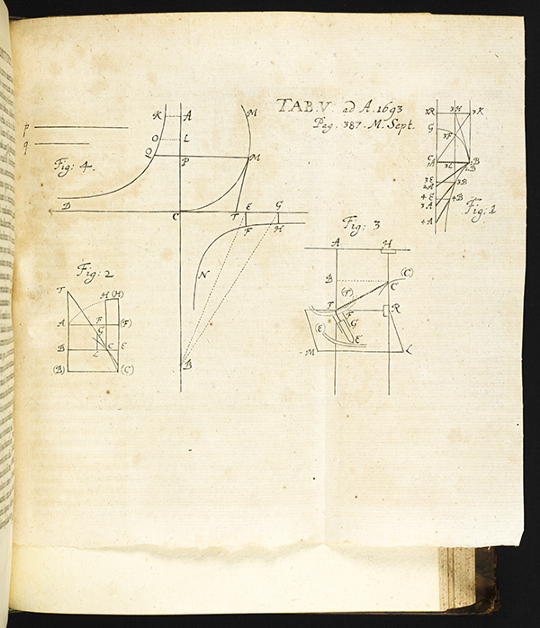 TAB.V. ad A. 1693
Pag. 387. M. Sept.
p
q
Fig: 4.
K A M
O L
Q P M
D C T E G
F H
N
B
Fig: 2
T H (H)
A F (F)
G
B L C E
(B) (C)
Fig: 3
A H
B C (C)
(T)
T F R
G
(E) E
M L
Fig: 1
3R 3H 3K
G 3F
C L B
3E 3B
2A
4E 4B
3A
4A